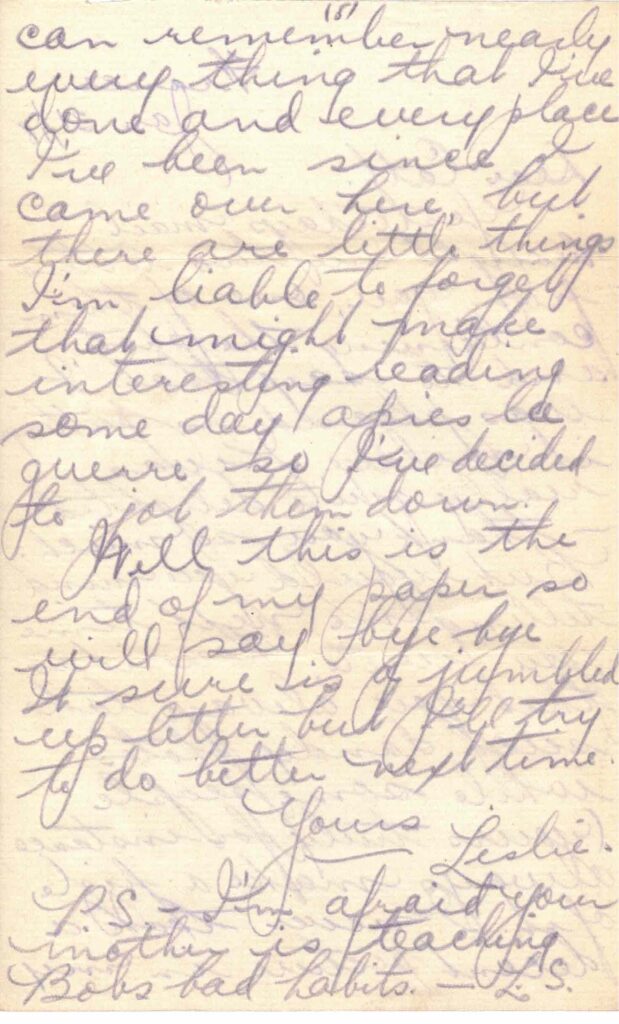 (5)
can remember nearly
every thing that I've
done and every place
I've been since I
came over here, but
there are little things
I'm liable to forget
that might make
interesting reading
some day apres la
guerre so I've decided
to jot them down.
Well this is the
end of my paper so
will say bye bye
It sure is a jumbled
up letter but I'll try
to do better next time.
Yours
Leslie.
P.S. - I'm afraid your
mother is teaching
Bobs bad habits. - L.S.